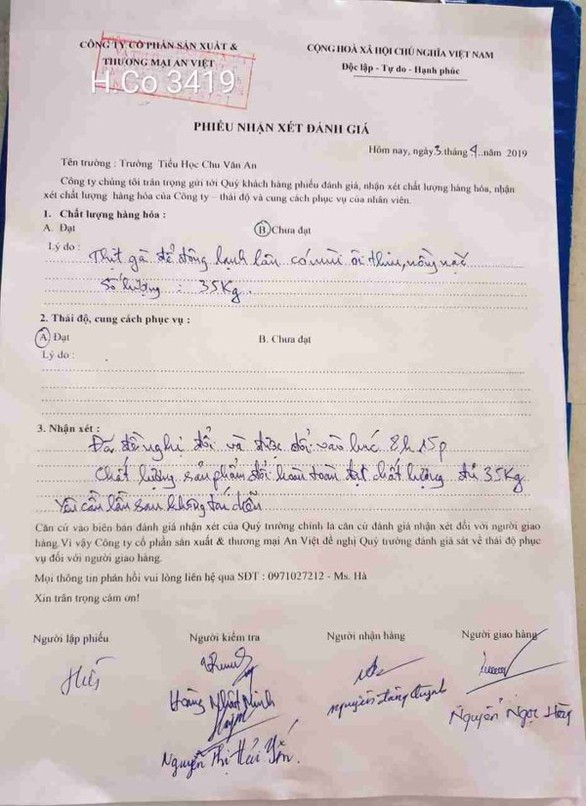 CÔNG TY CỔ PHẦN SẢN XUẤT &
THƯƠNG MẠI AN VIỆT
H.Co 3419
CỘNG HOÀ XÃ HỘI CHỦ NGHĨA VIỆT NAM
Độc lập - Tự do - Hạnh phúc
PHIẾU NHẬN XÉT ĐÁNH GIÁ
Hôm nay, ngày 3 tháng 9 năm 2019
Tên trường : Trường Tiểu Học Chu Văn An
Công ty chúng tôi trân trọng gửi tới Quý khách hàng phiếu đánh giá, nhận xét chất lượng hàng hóa, nhận
xét chất lượng hàng hóa của Công ty – thái độ và cung cách phục vụ của nhân viên.
1. Chất lượng hàng hóa :
A. Đạt B. Chưa đạt
Lý do : Thịt gà để đông lạnh lâu có mùi ôi thiu, nồng nặc
Số lượng : 35Kg.
2. Thái độ, cung cách phục vụ :
A. Đạt B. Chưa đạt
Lý do :
3. Nhận xét :
Đã đề nghị đổi và được đổi vào lúc 8h15p
Chất lượng sản phẩm đổi hoàn toàn đạt chất lượng đủ 35Kg
Yêu cầu lần sau không tái diễn
Căn cứ vào biên bản đánh giá nhận xét của Quý trường chính là căn cứ đánh giá nhận xét đối với người giao
hàng. Vì vậy Công ty cổ phần sản xuất & thương mại An Việt đề nghị Quý trường đánh giá sát về thái độ phục
vụ đối với người giao hàng.
Mọi thông tin phản hồi vui lòng liên hệ qua SĐT : 0971027212 - Ms. Hà
Xin trân trọng cảm ơn!
Người lập phiếu Người kiểm tra Người nhận hàng Người giao hàng
Hoàng Nhật Minh
Nguyễn Thị Hải Yến.
Nguyễn Đăng Quỳnh
Nguyễn Ngọc